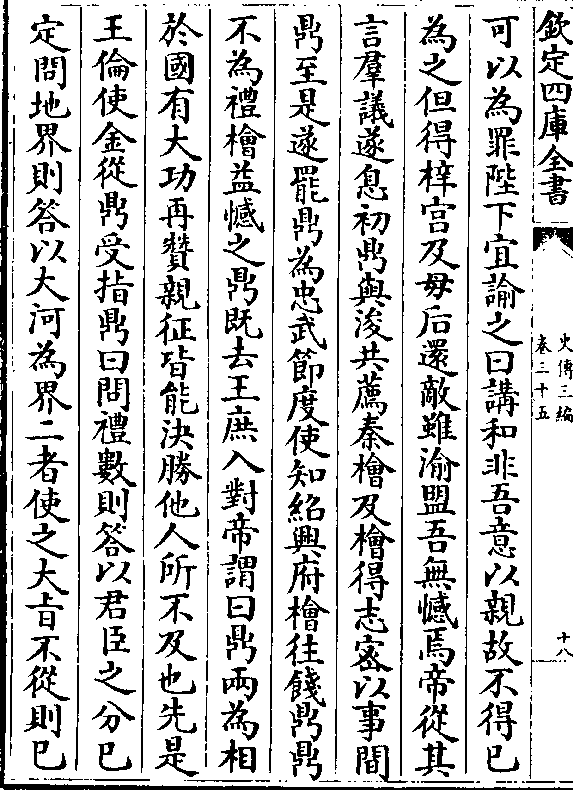 欽定四庫全書
史傳三編
卷三十五
十八
可以為罪陛下宜諭之曰講和非吾意以親故不得已
為之但得梓宫及母后還敵雖渝盟吾無憾焉帝從其
言羣議遂息初鼎與浚共薦秦檜及檜得志密以事間
鼎至是遂罷鼎為忠武節度使知紹興府檜往餞鼎鼎
不為禮檜益憾之鼎既去王庶入對帝謂曰鼎兩為相
於國有大功再贊親征皆能決勝他人所不及也先是
王倫使金從鼎受指鼎曰問禮數則答以君臣之分已
定問地界則答以大河為界二者使之大㫖不從則已